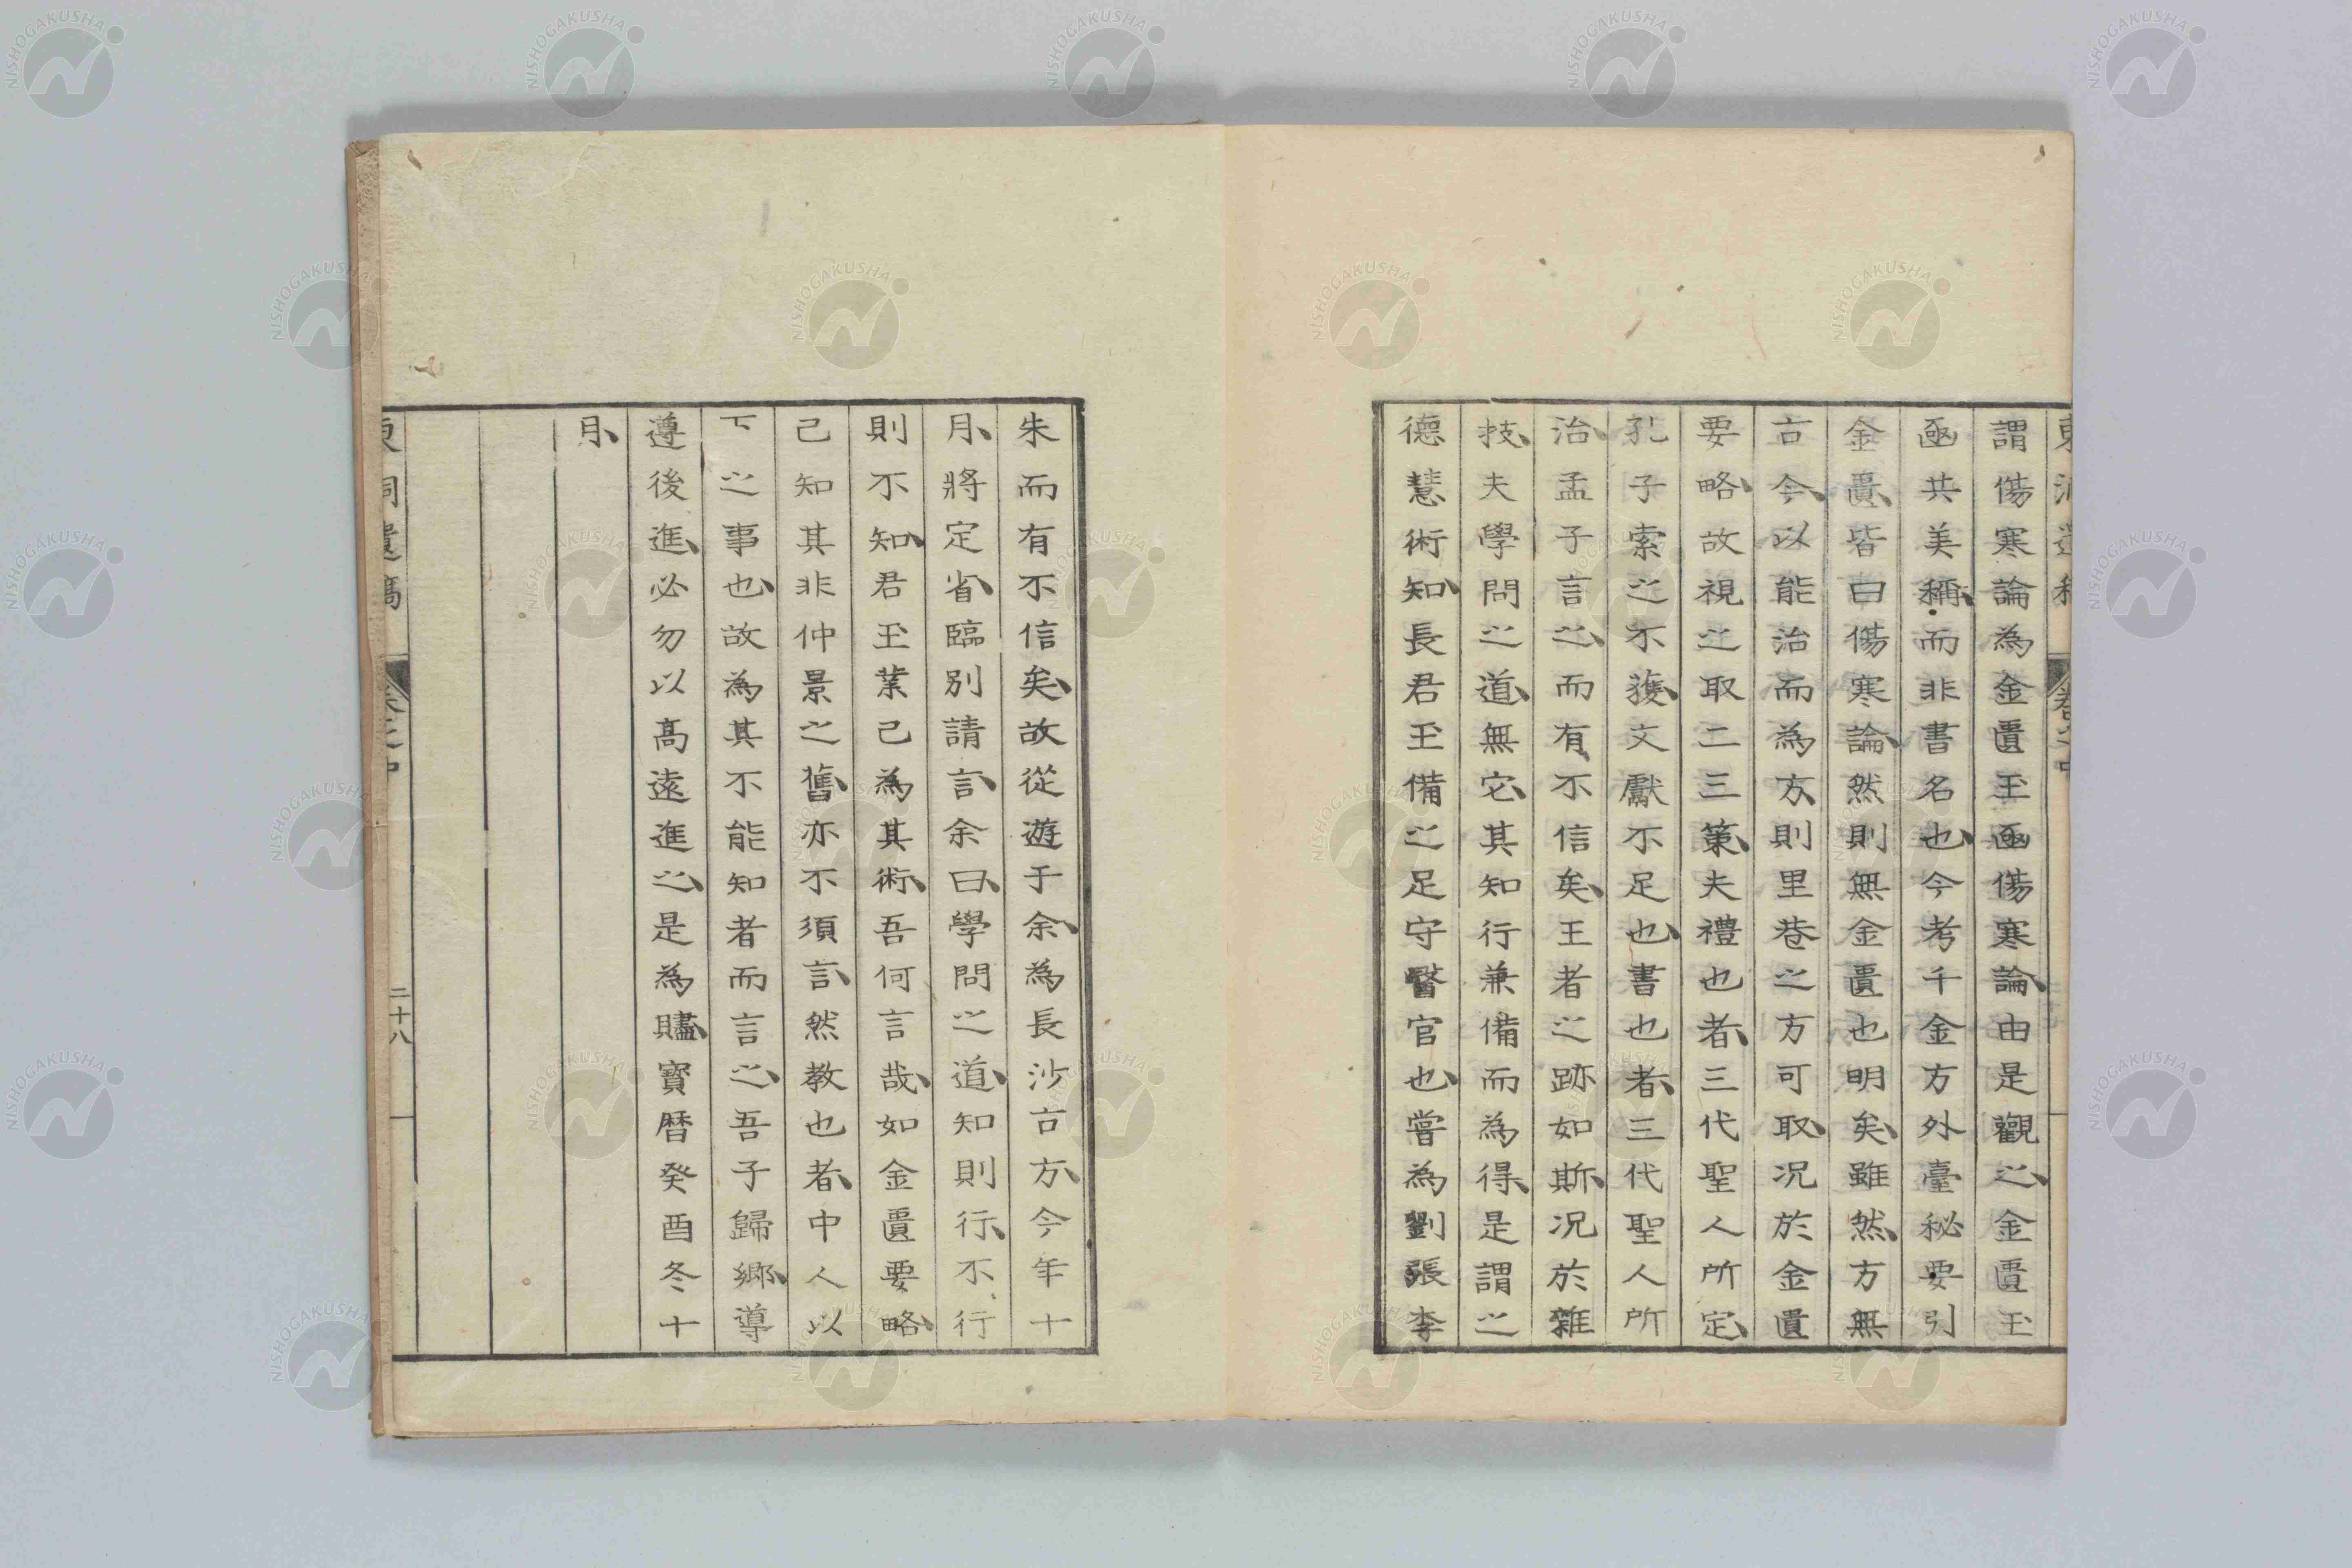 謂傷寒論為金匱玉函傷寒論、由是觀之、金匱玉
函共美稱、而非書名也、今考千金方外臺秘要引
金匱、皆曰傷寒論、然則無金匱也明矣、雖然、方無
古今、以能治而為方、則里巷之方可取、況於金匱
要略、故視之取二三策、夫禮也者、三代聖人所定、
孔子索之不獲、文獻不足也、書也者、三代聖人所
治、孟子言之、而有不信矣、王者之跡如斯、況於雜
技、夫學問之道、無它、其知行兼備而為得、是謂之
德慧術知、長君玉備之足守醫官也、嘗為劉張李
朱而有不信矣、故從遊于余、為長沙古方、今年十
月、將定省、臨別請言、余曰、學問之道、知則行、不行
則不知、君玉業已為其術、吾何言哉、如金匱要略、
已知其非仲景之舊、亦不須言、然教也者、中人以
下之事也、故為其不能知者而言之、吾子歸鄉、導
遵後進、必勿以高遠進之、是為贐、寶曆癸酉冬十
月、
東洞遺稿 卷之中 二十八
NISHOGAKUSHA